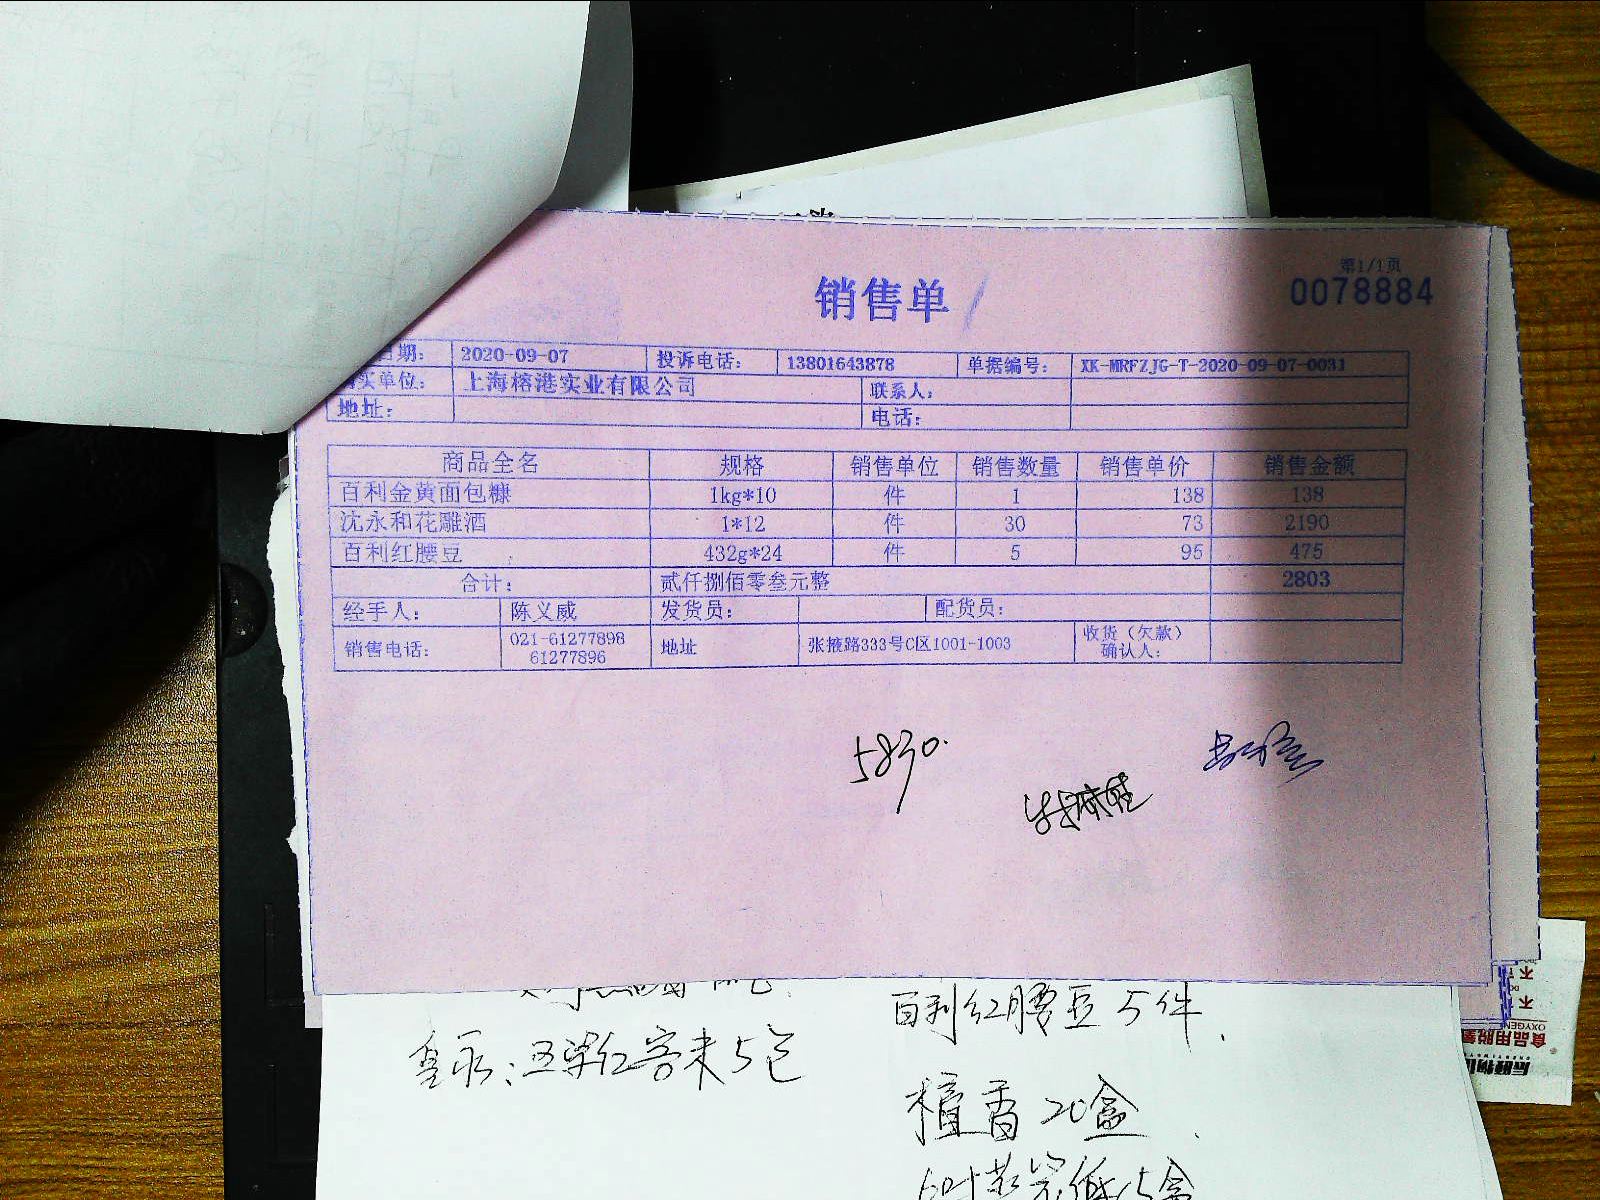 第1/1页
销售单
0078884
日期： 2020-09-07 投诉电话： 13801643878 单据编号： XK-MRFZJG-T-2020-09-07-0031
买单位： 上海榕港实业有限公司 联系人：
地址： 电话：
商品全名 规格 销售单位 销售数量 销售单价 销售金额
百利金黄面包糠 1kg*10 件 1 138 138
沈永和花雕酒 1*12 件 30 73 2190
百利红腰豆 432g*24 件 5 95 475
合计： 贰仟捌佰零叁元整 2803
经手人： 陈义威 发货员： 配货员：
销售电话： 021-61277898 61277896 地址 张掖路333号C区1001-1003 收货（欠款）确认人：
5830.
百利红腰豆 5件.
5包
檀香 20盒
食品用脱氧
OXYGEN